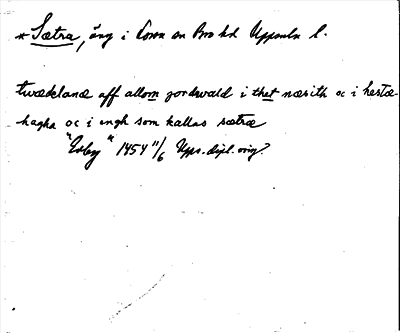 * Sætra, äng i Torsv sn Bro hd Uppsala l.
twæklandæ aff allom jordwald i thet næsith oc i hæstæ-
hagha oc i ængh som kallas sætræ
"Ekby" 1454 11/6 Upps. dipl. orig?